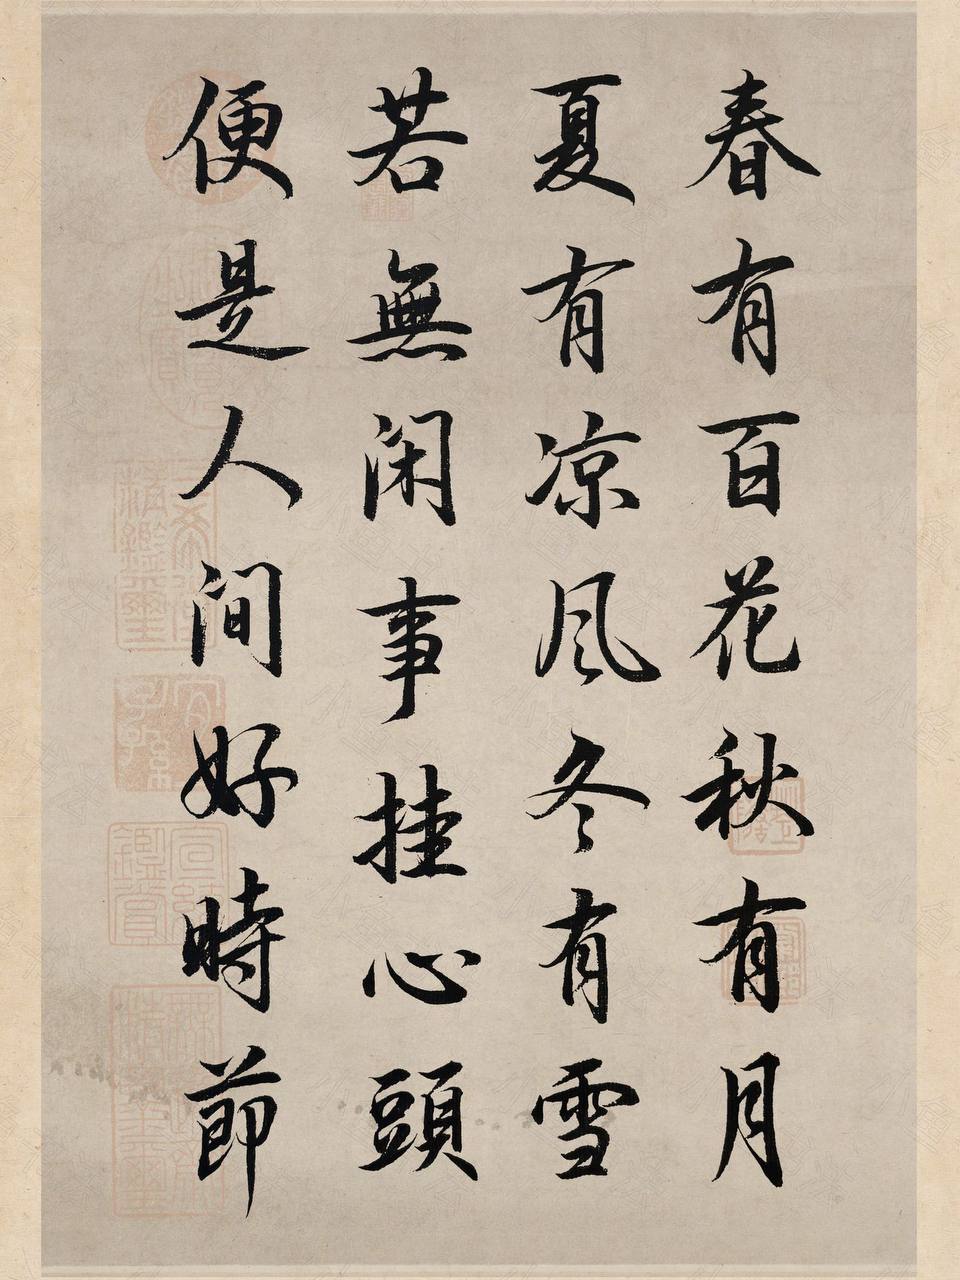 春有百花秋有月
夏有凉风冬有雪
若無闲事挂心頭
便是人间好時節